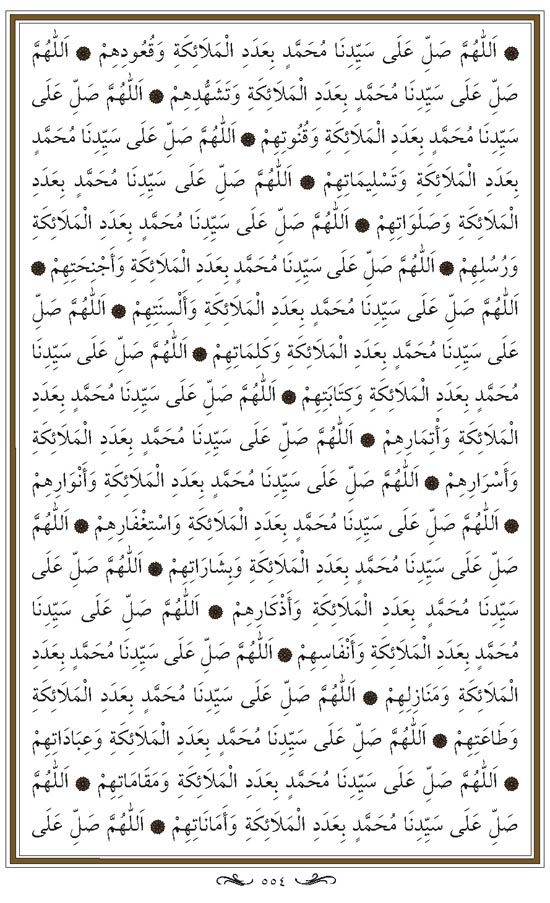 ۞ اَللّٰهُمَّ صَلِّ عَلَى سَيِّدِنَا مُحَمَّدٍ بِعَدَدِ الْمَلَائِكَةِ وَقُعُودِهِمْ ۞ اَللّٰهُمَّ
صَلِّ عَلَى سَيِّدِنَا مُحَمَّدٍ بِعَدَدِ الْمَلَائِكَةِ وَتَشَهُّدِهِمْ ۞ اَللّٰهُمَّ صَلِّ عَلَى
سَيِّدِنَا مُحَمَّدٍ بِعَدَدِ الْمَلَائِكَةِ وَقُنُوتِهِمْ ۞ اَللّٰهُمَّ صَلِّ عَلَى سَيِّدِنَا مُحَمَّدٍ
بِعَدَدِ الْمَلَائِكَةِ وَتَسْلِيمَاتِهِمْ ۞ اَللّٰهُمَّ صَلِّ عَلَى سَيِّدِنَا مُحَمَّدٍ بِعَدَدِ
الْمَلَائِكَةِ وَصَلَوَاتِهِمْ ۞ اَللّٰهُمَّ صَلِّ عَلَى سَيِّدِنَا مُحَمَّدٍ بِعَدَدِ الْمَلَائِكَةِ
وَرُسُلِهِمْ ۞ اَللّٰهُمَّ صَلِّ عَلَى سَيِّدِنَا مُحَمَّدٍ بِعَدَدِ الْمَلَائِكَةِ وَأَجْنِحَتِهِمْ ۞
اَللّٰهُمَّ صَلِّ عَلَى سَيِّدِنَا مُحَمَّدٍ بِعَدَدِ الْمَلَائِكَةِ وَأَلْسِنَتِهِمْ ۞ اَللّٰهُمَّ صَلِّ
عَلَى سَيِّدِنَا مُحَمَّدٍ بِعَدَدِ الْمَلَائِكَةِ وَكَلِمَاتِهِمْ ۞ اَللّٰهُمَّ صَلِّ عَلَى سَيِّدِنَا
مُحَمَّدٍ بِعَدَدِ الْمَلَائِكَةِ وَكِتَابَتِهِمْ ۞ اَللّٰهُمَّ صَلِّ عَلَى سَيِّدِنَا مُحَمَّدٍ بِعَدَدِ
الْمَلَائِكَةِ وَأْتِمَارِهِمْ ۞ اَللّٰهُمَّ صَلِّ عَلَى سَيِّدِنَا مُحَمَّدٍ بِعَدَدِ الْمَلَائِكَةِ
وَأَسْرَارِهِمْ ۞ اَللّٰهُمَّ صَلِّ عَلَى سَيِّدِنَا مُحَمَّدٍ بِعَدَدِ الْمَلَائِكَةِ وَأَنْوَارِهِمْ
۞ اَللّٰهُمَّ صَلِّ عَلَى سَيِّدِنَا مُحَمَّدٍ بِعَدَدِ الْمَلَائِكَةِ وَاسْتِغْفَارِهِمْ ۞ اَللّٰهُمَّ
صَلِّ عَلَى سَيِّدِنَا مُحَمَّدٍ بِعَدَدِ الْمَلَائِكَةِ وَبِشَارَاتِهِمْ ۞ اَللّٰهُمَّ صَلِّ عَلَى
سَيِّدِنَا مُحَمَّدٍ بِعَدَدِ الْمَلَائِكَةِ وَأَذْكَارِهِمْ ۞ اَللّٰهُمَّ صَلِّ عَلَى سَيِّدِنَا
مُحَمَّدٍ بِعَدَدِ الْمَلَائِكَةِ وَأَنْفَاسِهِمْ ۞ اَللّٰهُمَّ صَلِّ عَلَى سَيِّدِنَا مُحَمَّدٍ بِعَدَدِ
الْمَلَائِكَةِ وَمَنَازِلِهِمْ ۞ اَللّٰهُمَّ صَلِّ عَلَى سَيِّدِنَا مُحَمَّدٍ بِعَدَدِ الْمَلَائِكَةِ
وَطَاعَتِهِمْ ۞ اَللّٰهُمَّ صَلِّ عَلَى سَيِّدِنَا مُحَمَّدٍ بِعَدَدِ الْمَلَائِكَةِ وَعِبَادَاتِهِمْ
۞ اَللّٰهُمَّ صَلِّ عَلَى سَيِّدِنَا مُحَمَّدٍ بِعَدَدِ الْمَلَائِكَةِ وَمَقَامَاتِهِمْ ۞ اَللّٰهُمَّ
صَلِّ عَلَى سَيِّدِنَا مُحَمَّدٍ بِعَدَدِ الْمَلَائِكَةِ وَأَمَانَاتِهِمْ ۞ اَللّٰهُمَّ صَلِّ عَلَى
٥٥٤